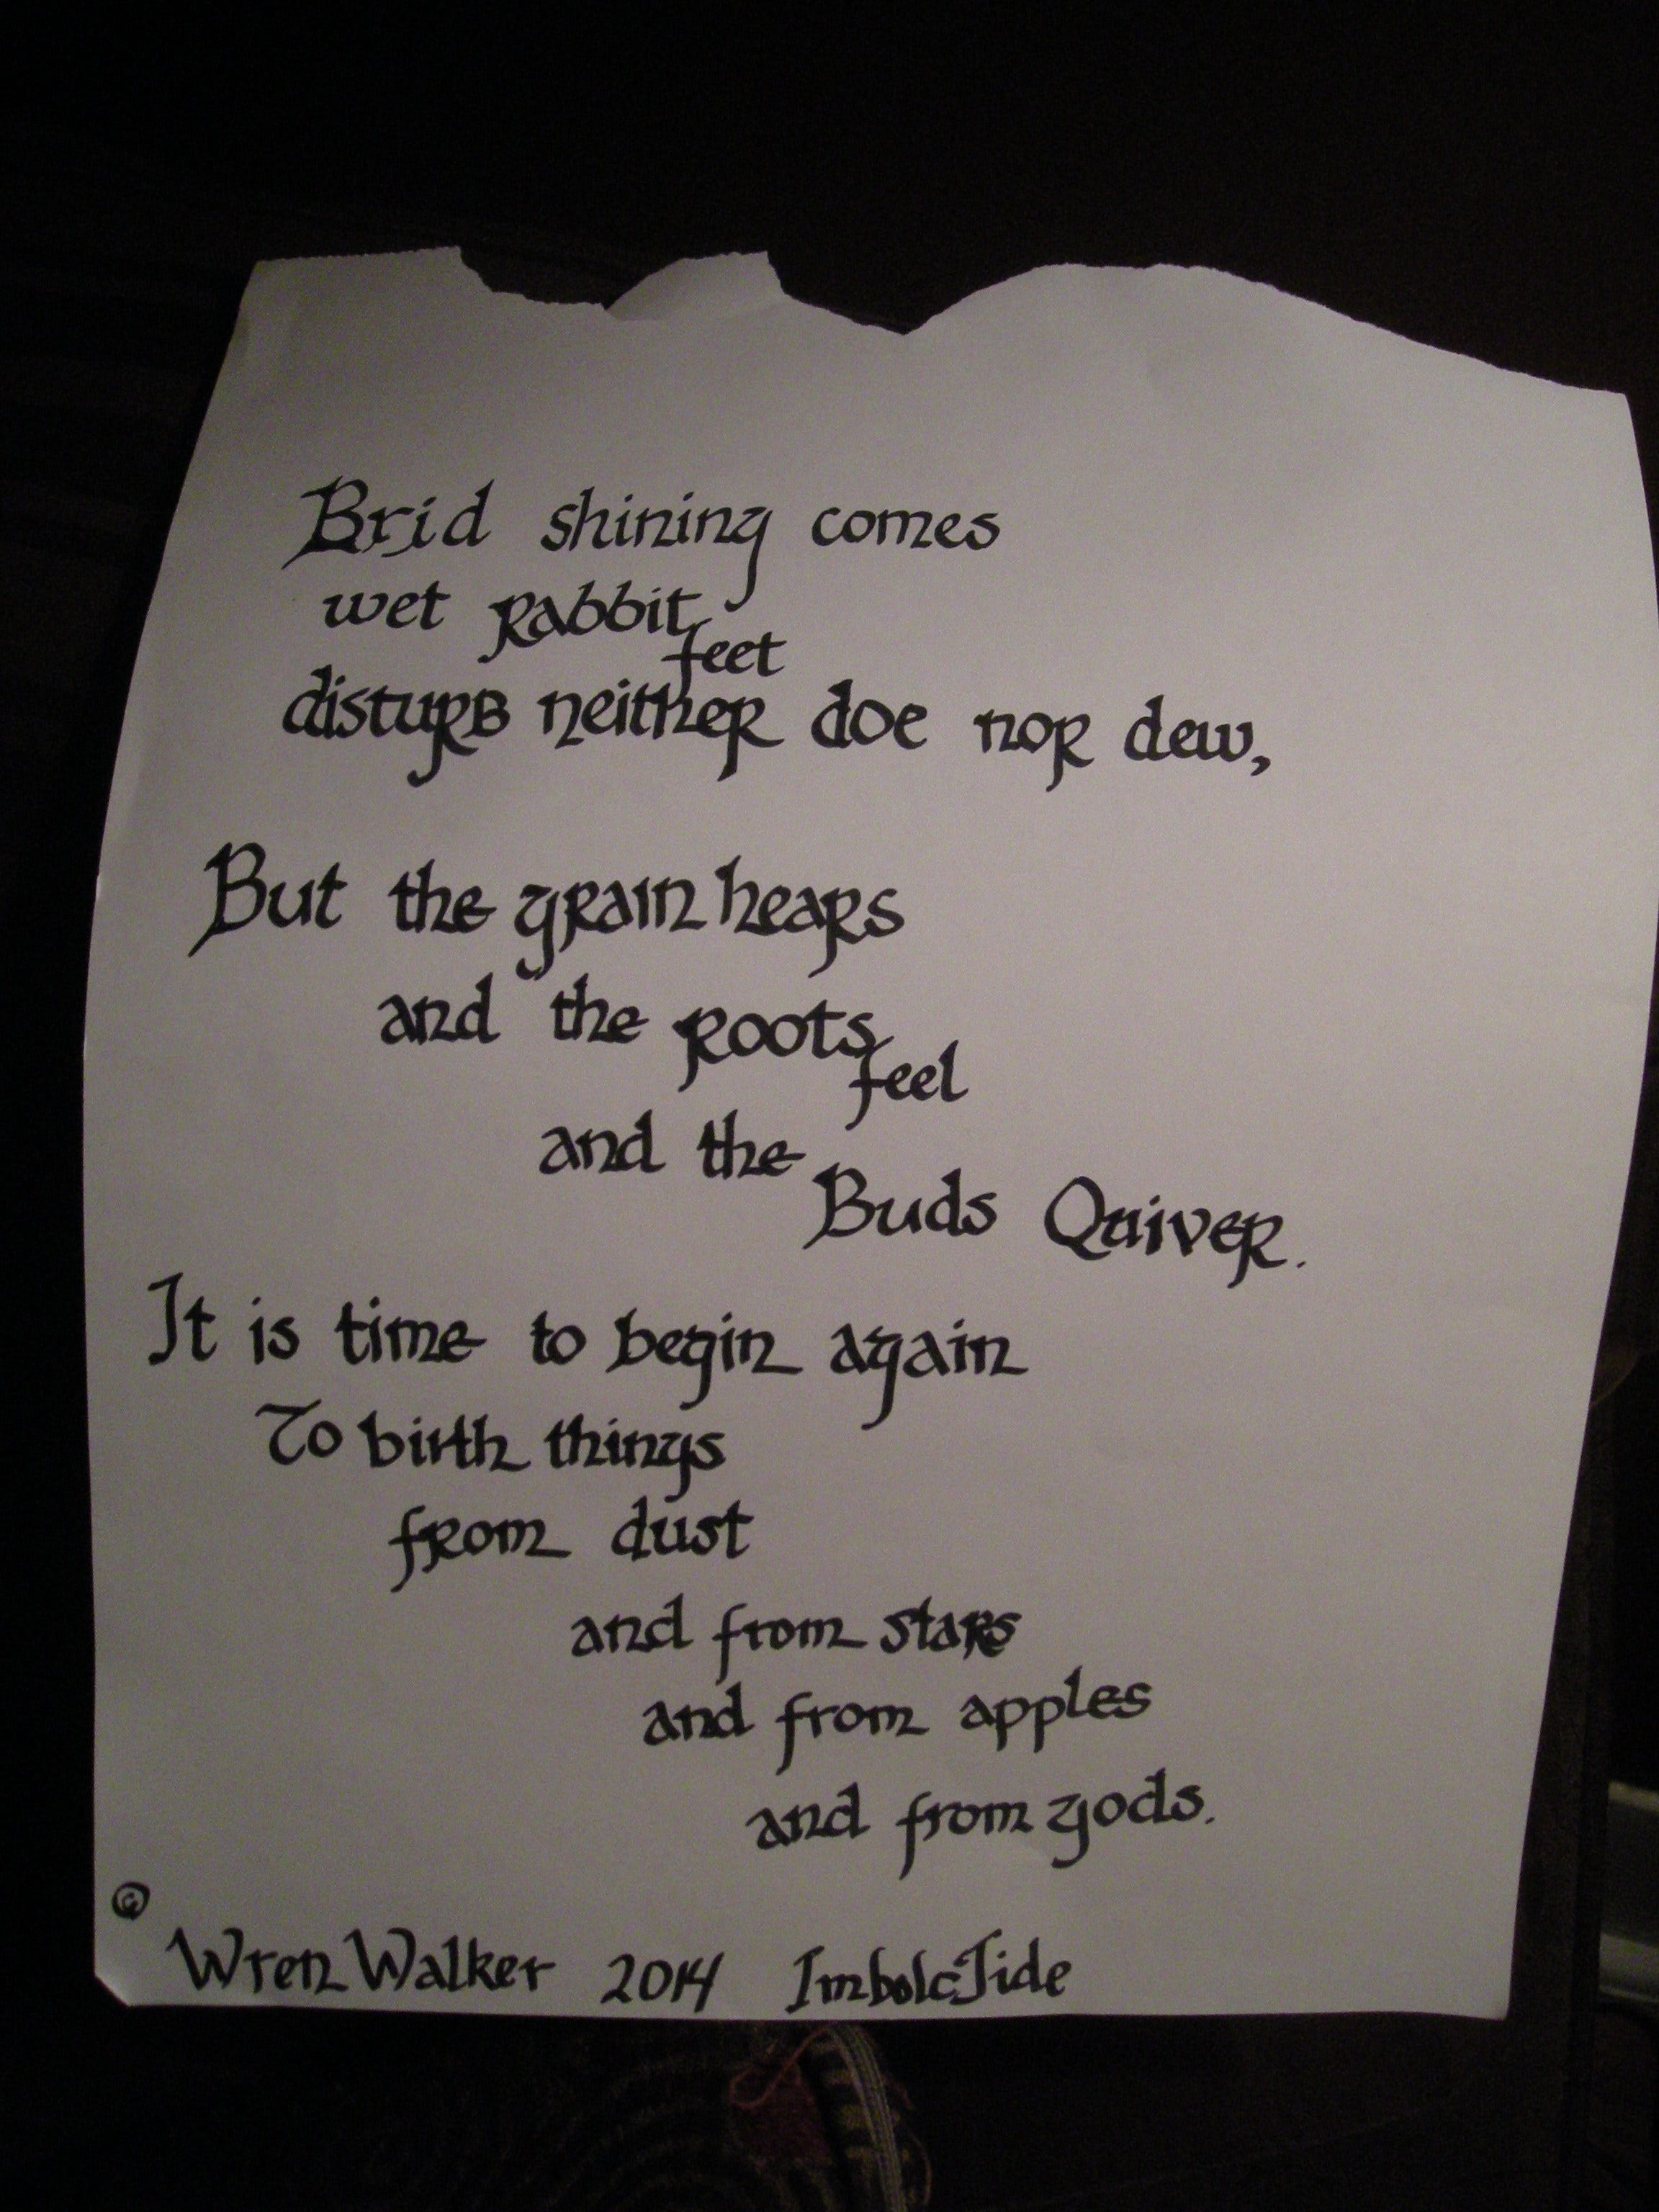 Brid shining comes
wet Rabbit
feet
disturb neither doe nor dew,
But the grain hears
and the Roots
feel
and the
Buds Quiver.
It is time to begin again
To birth things
from dust
and from stars
and from apples
and from gods.
©
Wren Walker 2014 ImbolcTide